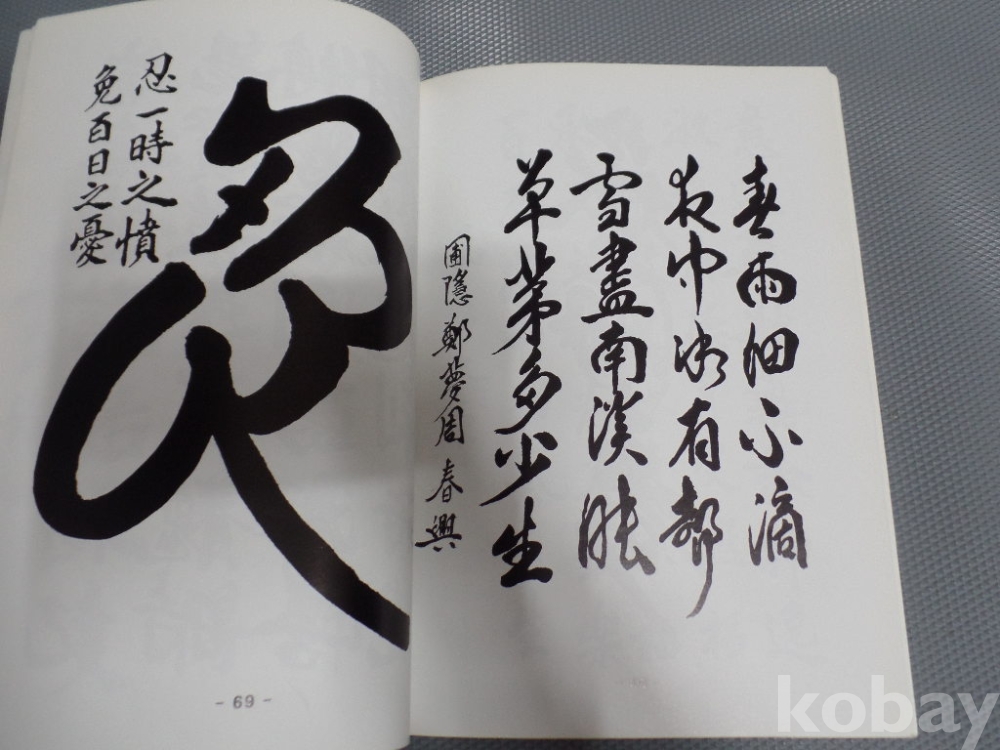 忍一時之憤
免百日之憂
- 69 -
春雨細不滴
夜中微有聲
雪盡南溪漲
草芽多少生
圃隱鄭夢周 春興
kobay